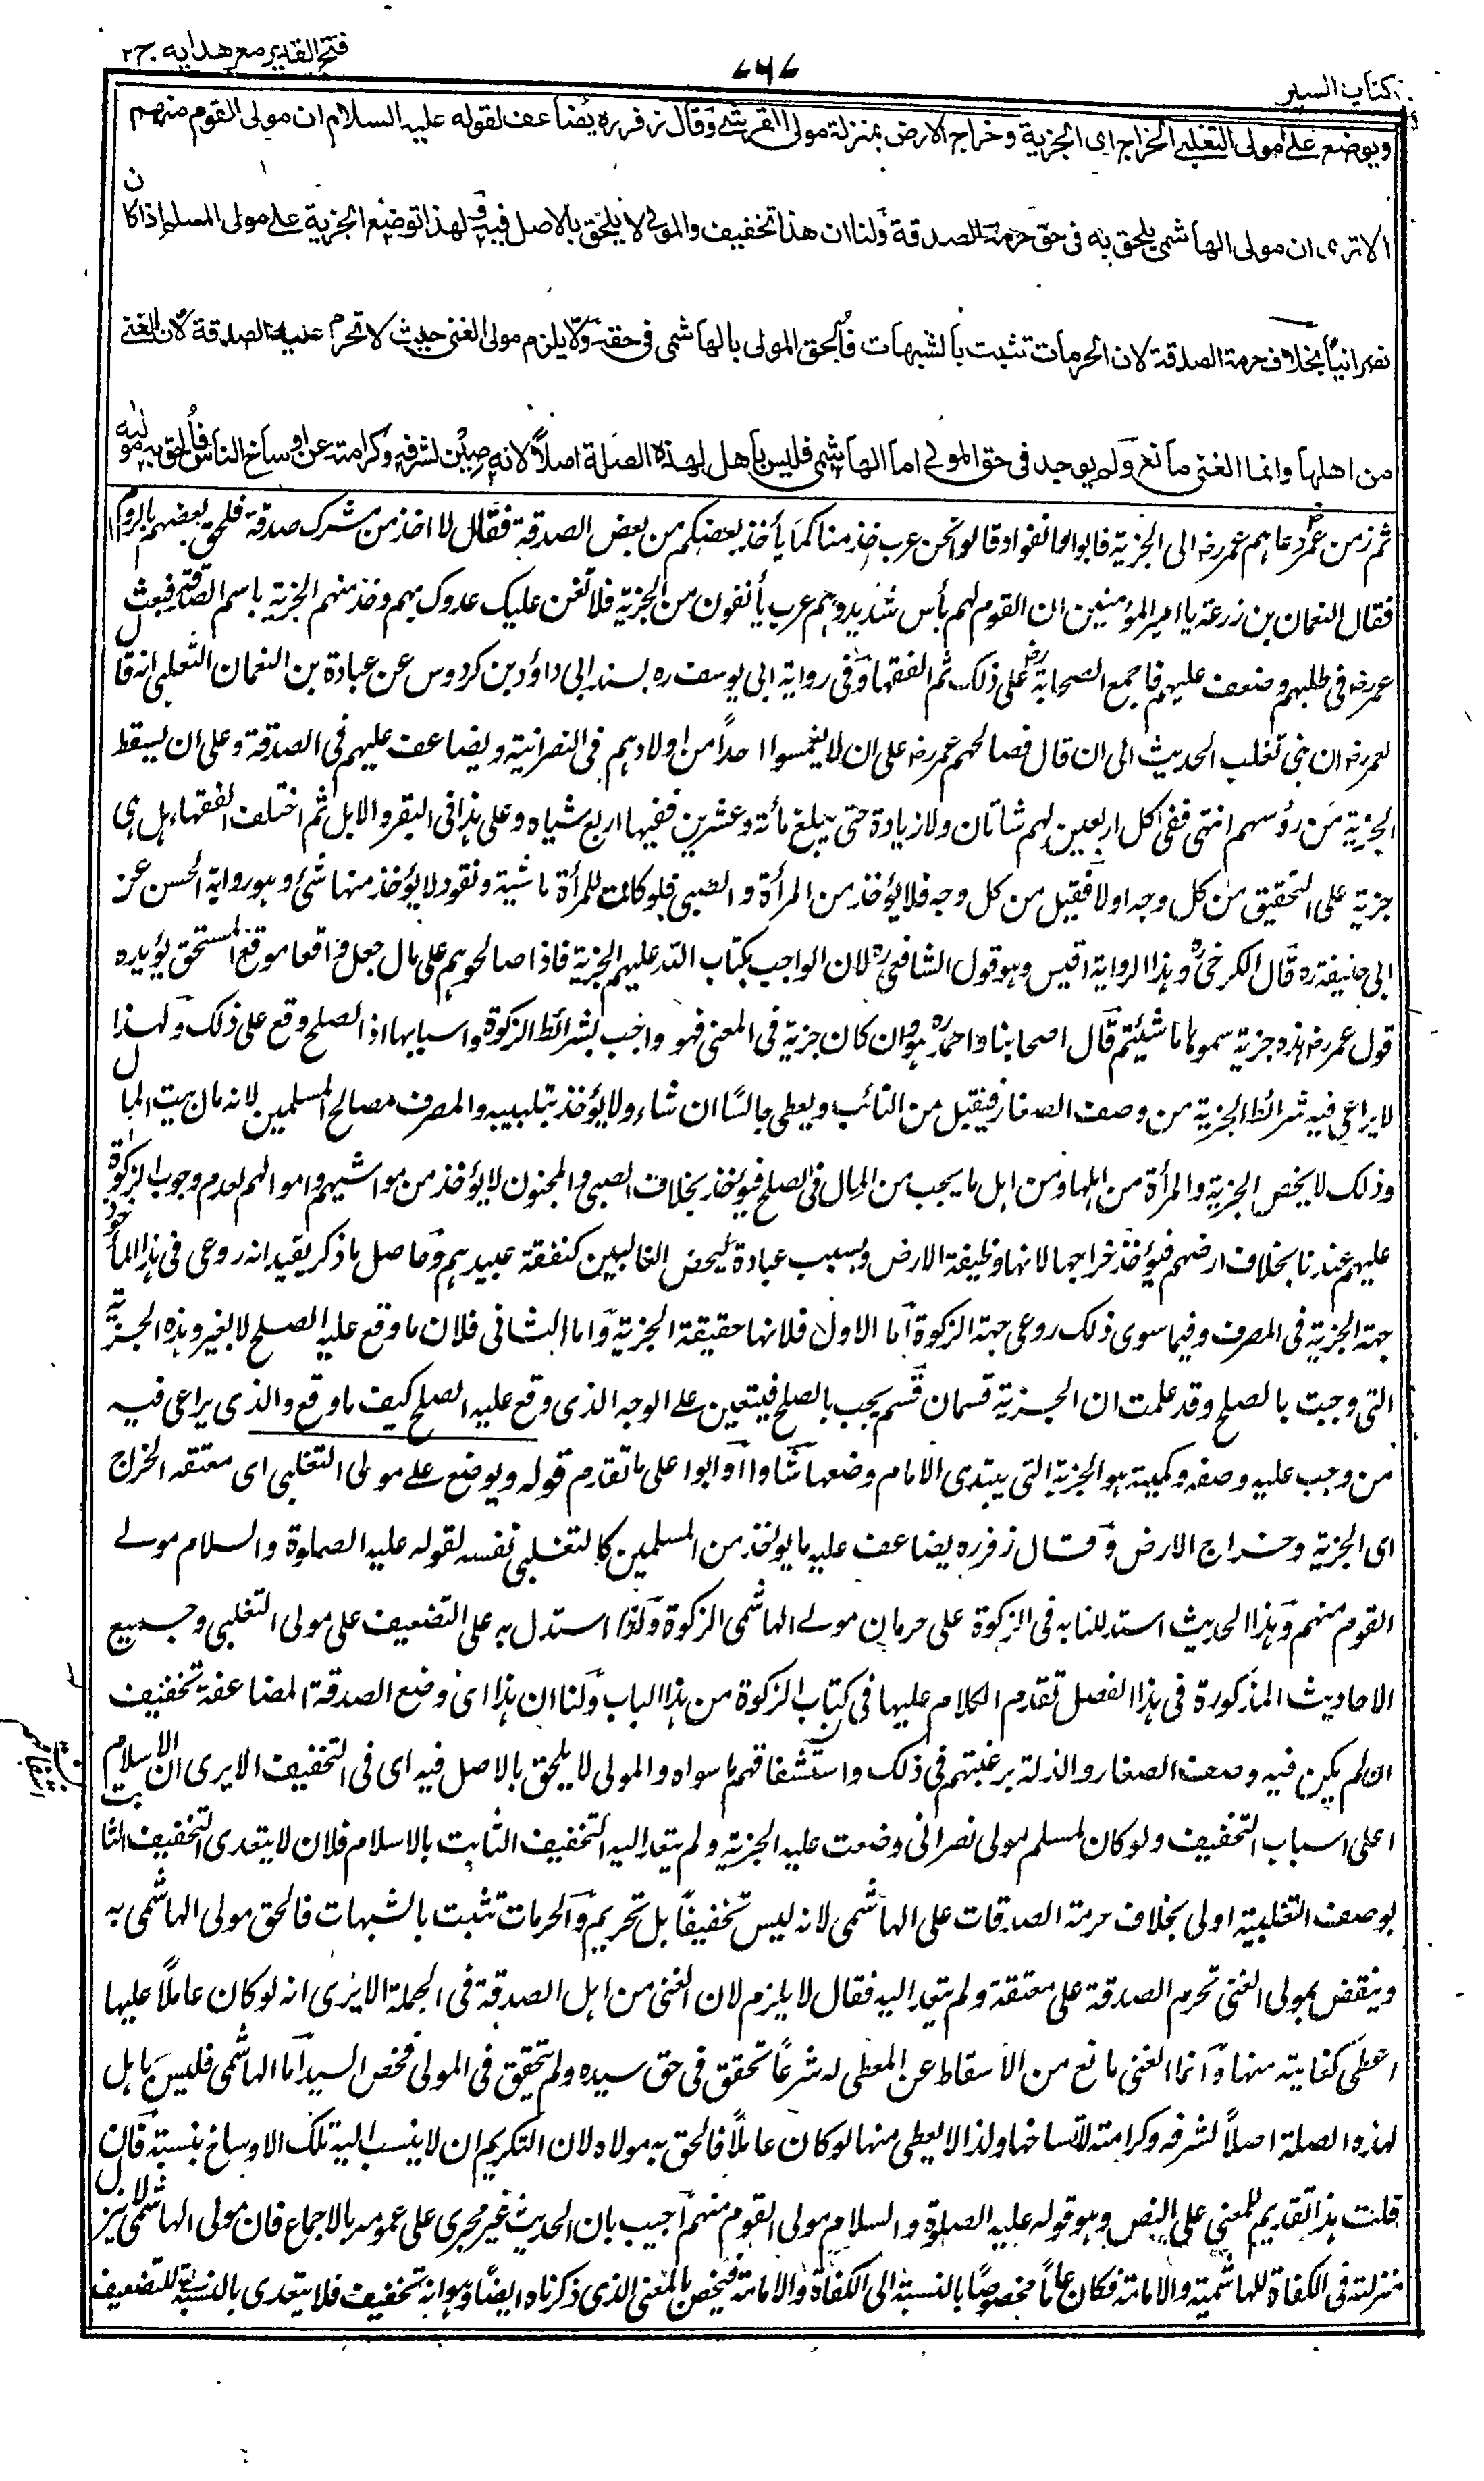 كتاب السير
٧٦٧
فتح القدير مع هدايه ج ٢
ويوضع على مولى التغلبى الخراج اى الجزية وخراج الارض بمنزلة مولى القرشى وقال زفر ره يضاعف لقوله عليه السلام ان مولى القوم منهم
الا ترى ان مولى الهاشمى يلحق به فى حق حرمة الصدقة ولنا ان هذا تخفيف والمولى لا يلحق بالاصل فيه ولهذا توضع الجزية على مولى المسلم اذا كان
نصرانيا بخلاف حرمة الصدقة لان الحرمات تثبت بالشبهات فألحق المولى بالهاشمى فى حقه ولا يلزم مولى الغنى حيث لا تحرم عليه الصدقة لان الغنى
من اهلها وانما الغنى مانع ولم يوجد فى حق المولى اما الهاشمى فليس بأهل لهذه الصلة اصلاً لانه صين لشرفه وكرامته عن اوساخ الناس فألحق به مولاه
ثم زمن عمر رض دعاهم عمر رض الى الجزية فابوا وانفوا وقالوا نحن عرب خذ منا كما يأخذ بعضكم من بعض الصدقة فقال لا اخذ من مشرك صدقة فلحق بعضهم بالروم
فقال النعمان بن زرعة يا امير المؤمنين ان القوم لهم بأس شديد وهم عرب يأنفون من الجزية فلا تعن عليك عدوك بهم وخذ منهم الجزية باسم الصدقة فبعث
عمر رض فى طلبهم وضعف عليهم فاجمع الصحابة رض على ذلك ثم الفقهاء وفى رواية ابى يوسف ره بسنده الى داؤد بن كردوس عن عبادة بن النعمان التغلبى انه قال
لعمر رض ان بنى تغلب الحديث الى ان قال فصالحهم عمر رض على ان لا يغمسوا احداً من اولادهم فى النصرانية ويضاعف عليهم فى الصدقة وعلى ان يسقط
الجزية من رؤسهم انتهى ففى كل اربعين لهم شاتان ولا زيادة حتى يبلغ مائة وعشرين ففيها اربع شياه وعلى هذا فى البقر والابل ثم اختلف الفقهاء هل هى
جزية على التحقيق من كل وجه اولا فقيل من كل وجه فلا يؤخذ من المرأة والصبى فلو كانت للمرأة ماشية ونقود لا يؤخذ منها شئ وهو رواية الحسن عن
ابى حنيفة ره قال الكرخى ره وهذا الرواية اقيس وهو قول الشافعى ره لان الواجب بكتاب الله عليهم الجزية فاذا صالحوهم على مال جعل واقعا موقع المستحق يؤيده
قول عمر رض هذه جزية سموها ما شئتم قال اصحابنا واحمد ره هو وان كان جزية فى المعنى فهو واجب بشرائط الزكوة واسبابها اذ الصلح وقع على ذلك ولهذا
لا يراعى فيه شرائط الجزية من وصف الصغار فيقبل من النائب ويعطى جالسًا ان شاء ولا يؤخذ بتلبيبه والمصرف مصالح المسلمين لانه مال بيت المال
وذلك لا يخص الجزية والمرأة من اهلها ومن اهل ما يجب من المال فى الصلح فيؤخذ بخلاف الصبى والمجنون لا يؤخذ من مواشيهم واموالهم لعدم وجوب الزكوة
عليهم عندنا بخلاف ارضهم فيؤخذ خراجها لانها وظيفة الارض وبسبب عبادة ليحض الغالبين كنفقة عبيدهم وحاصل ما ذكر يفيد انه روعى فى هذا المأخوذ
جهة الجزية فى المصرف وفيما سوى ذلك روعى جهة الزكوة اما الاول فلانها حقيقة الجزية واما الثانى فلان ما وقع عليه الصلح لا يغير وهذه الجزية
التى وجبت بالصلح وقد علمت ان الجزية قسمان قسم يجب بالصلح فيتعين على الوجه الذى وقع عليه الصلح كيف ما وقع والذى يراعى فيه
من وجب عليه وصفه وكميته هو الجزية التى يبتدى الامام وضعها شاؤا او ابوا على ما تقدم قوله ويوضع على مولى التغلبى اى معتقه الخراج
اى الجزية وخراج الارض وقال زفر ره يضاعف عليه ما يؤخذ من المسلمين كالتغلبى نفسه لقوله عليه الصلوة والسلام مولى
القوم منهم وبهذا الحديث استدللنا به فى الزكوة على حرمان مولى الهاشمى الزكوة وكذا استدل به على التضعيف على مولى التغلبى وجميع
الاحاديث المذكورة فى هذا الفصل تقدم الكلام عليها فى كتاب الزكوة من هذا الباب ولنا ان هذا اى وضع الصدقة المضاعفة تخفيف
ان لم يكن فيه وصف الصغار والذلة برغبتهم فى ذلك واستشفاقهم ما سواه والمولى لا يلحق بالاصل فيه اى فى التخفيف الا يرى ان الاسلام
اعلى اسباب التخفيف ولو كان لمسلم مولى نصرانى وضعت عليه الجزية ولم يتعد اليه التخفيف الثابت بالاسلام فلان لا يتعدى التخفيف الثابت
بوصف التغلبية اولى بخلاف حرمة الصدقات على الهاشمى لانه ليس تخفيفًا بل تحريم والحرمات تثبت بالشبهات فالحق مولى الهاشمى به
وينقض بمولى الغنى تحرم الصدقة على معتقه ولم يتعد اليه فقال لا يلزم لان الغنى من اهل الصدقة فى الجملة الا يرى انه لو كان عاملًا عليها
اعطى كفايته منها وانما الغنى مانع من الاسقاط عن المعطى له شرعًا تحقق فى حق سيده ولم يتحقق فى المولى فخص السيد اما الهاشمى فليس باهل
لهذه الصلة اصلاً لشرفه وكرامته لاتساخها ولذا لا يعطى منها لو كان عاملًا فالحق به مولاه لان التكريم ان لا ينسب اليه تلك الاوساخ بنسبة فان
قلت هذا تقديم للمعنى على النص وهو قوله عليه الصلوة والسلام مولى القوم منهم اجيب بان الحديث غير مجرى على عمومه بالاجماع فان مولى الهاشمى لا ينزل
منزلته فى الكفاة للهاشمية والامامة فكان عامًا مخصوصًا بالنسبة الى الكفاة والامامة فيخص بالمعنى الذى ذكرناه ايضًا وهو انه تخفيف فلا يتعدى بالنسبة للتضعيف